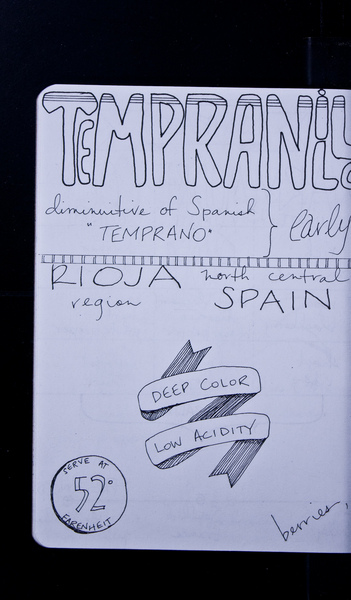 TEMPRANILLO
diminuitive of Spanish
"TEMPRANO"
early
RIOJA north central
region SPAIN
DEEP COLOR
LOW ACIDITY
SERVE AT
52°
FARENHEIT
berries,